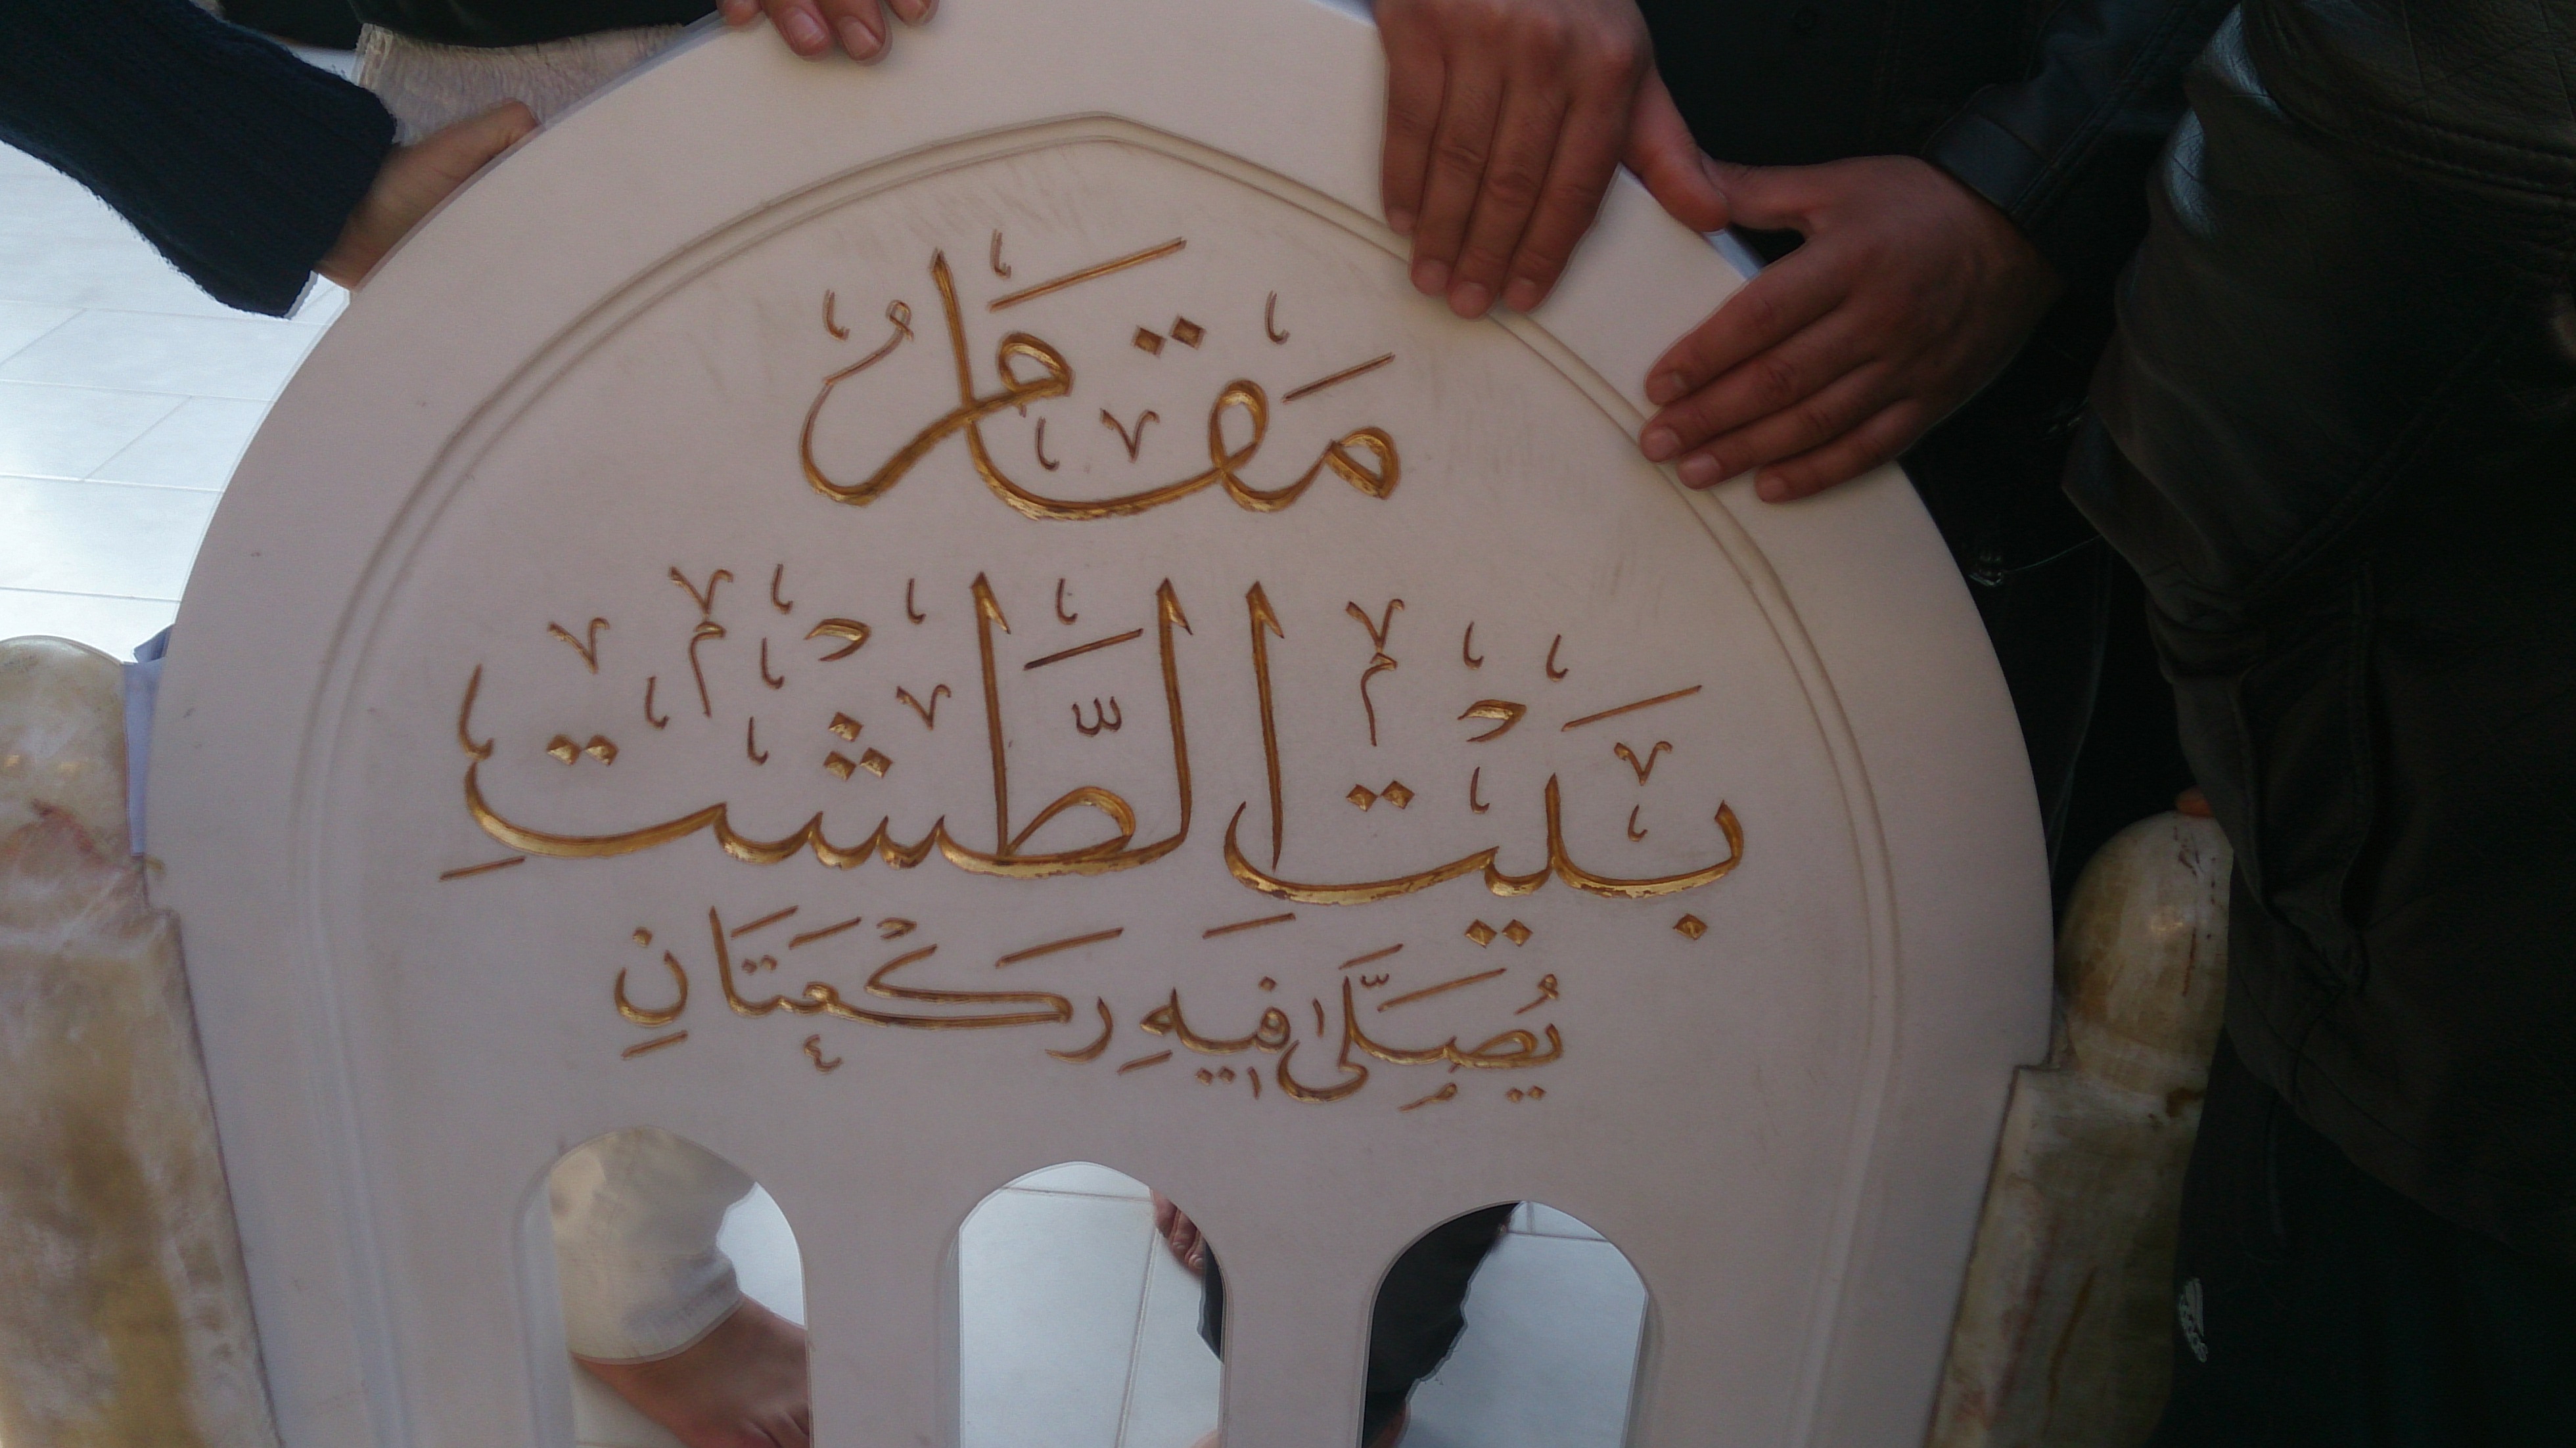 مَقَامُ
بَيْتِ الطَّشْتِ
يُصَلَّى فِيهِ رَكْعَتَانِ